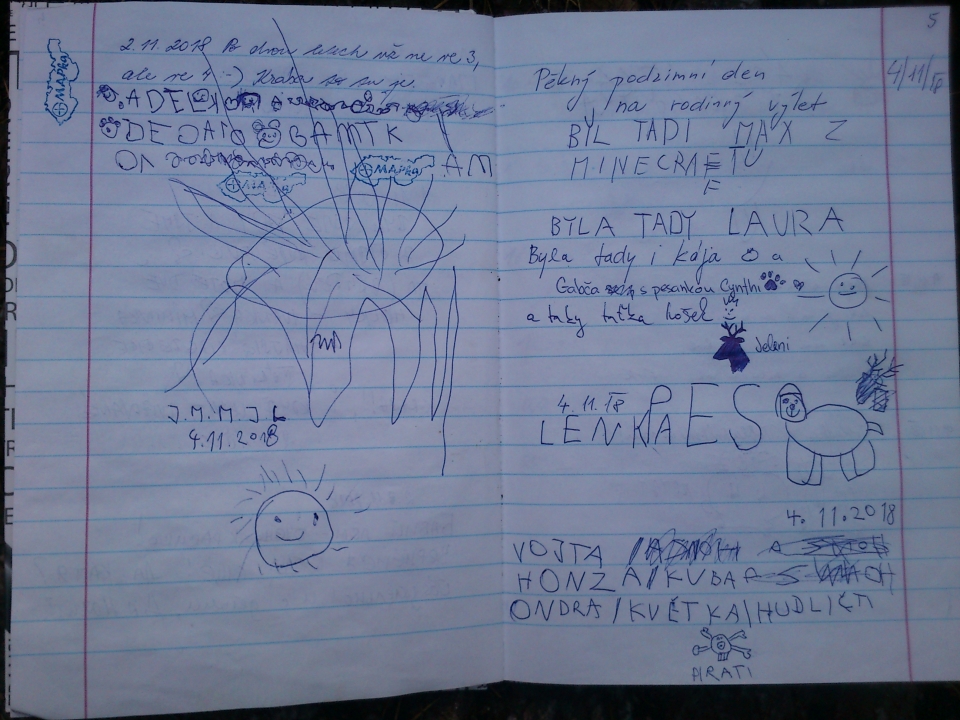 MAPKA
2.11.2018 Po dvou letech má me ne 3,
ale ne 4 :-)
.ADEL
DEJATO BAMTK
MAPKA AM
J.M.M.J.L
4.11.2018
5
4/11/18
Pěkný podzimní den
na rodinný výlet
BYL TADI MAX Z
MINECRAFTU
F
BYLA TADY LAURA
Byla tady i Kája a
Gábča s pesankou Cynthi
a taky taťka Košek
Jeleni
4.11.18
LENKA PES
4.11.2018
VOJTA /
HONZA/KUBA
ONDRA/KVĚTKA/HUDLIČTÍ
PIRATI